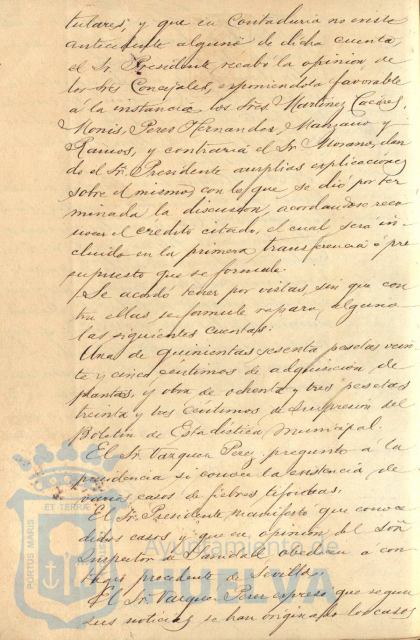 tulares, y que en Contaduria no existe
antecedente alguno de dicha cuenta,
el Sr. Presidente recabó la opinion de
los Sres Concejales, exponiendola favorable
á la instancia los Sres Martinez Caceres,
Monis, Perez Hernandez, Manzano y
Ramos, y contraria el Sr. Morano, dan
do el Sr. Presidente amplias explicaciones
sobre el mismo, con lo que se dió por ter
minada la discusion, acordandose reco
nocer el credito citado, el cual será in
cluido en la primera transferencia ó pre
supuesto que se formule.
Se acordó tener por vistas, sin que con
tra ellas se formule reparo alguno
las siguientes cuentas:
Una de quinientas sesenta pesetas vein
te y cinco centimos de adquisicion de
plantas, y otra de ochenta y tres pesetas
treinta y tres centimos de impresion del
Boletin de Estadistica Municipal.
El Sr. Vazquez Perez preguntó á la
presidencia si conoce la existencia de
varios casos de fiebres tifoideas.
El Sr. Presidente manifestó que conoce
dichos casos y que en opinion del Señor
Inspector de Sanidad obedecen a con
tagio procedente de Sevilla.
El Sr. Vazquez Perez expresó que segun
sus noticias se han originado los casos
PORTUS MARIS
ET TERRÆ
Ayuntamiento de
HUELVA